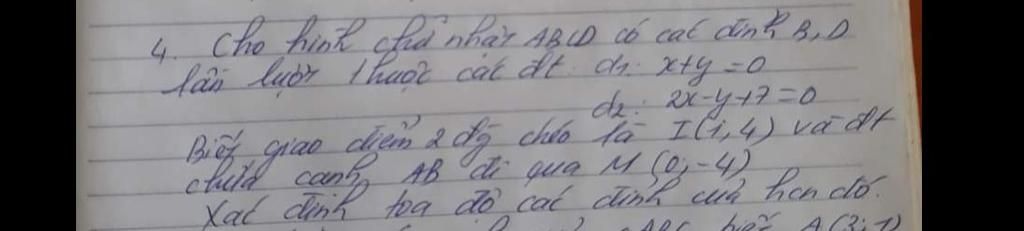 4. Cho hình chữ nhật ABCD có các đỉnh B, D
lần lượt thuộc các đt: d1: x+y=0
d2: 2x-y+7=0
Biết giao điểm 2 đg chéo là I(1,4) và đt
chứa cạnh AB đi qua M(0;-4)
Xác định tọa độ các đỉnh của hcn đó.
ABC biết A(3;1)